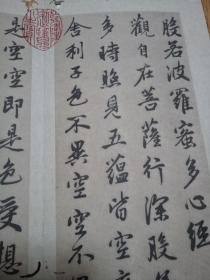 般若波羅蜜多心經
觀自在菩薩行深般
多時照見五蘊皆空度
舍利子色不異空空不
是空空即是色受想